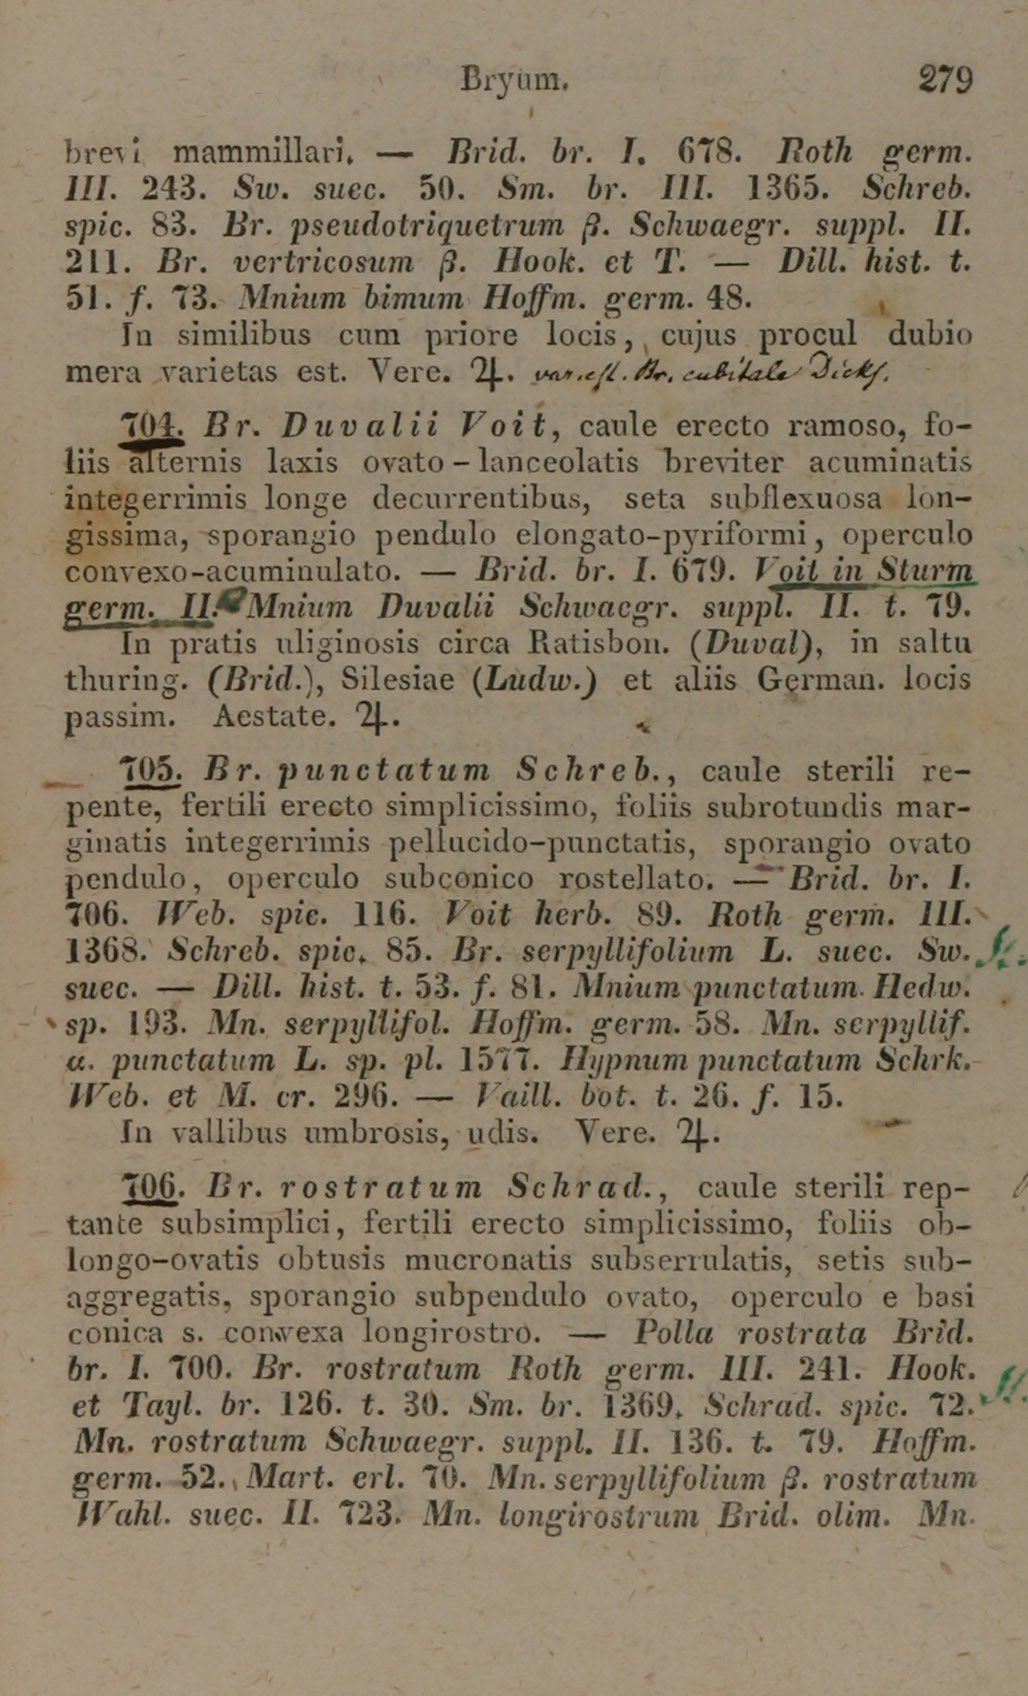 Bryum. 279
brevi mammillari. — Brid. br. I. 678. Roth germ.
III. 243. Sw. suec. 50. Sm. br. III. 1365. Schreb.
spic. 83. Br. pseudotriquetrum β. Schwaegr. suppl. II.
211. Br. vertricosum β. Hook. et T. — Dill. hist. t.
51. f. 73. Mnium bimum Hoffm. germ. 48.
In similibus cum priore locis, cujus procul dubio
mera varietas est. Vere. ♃. var. est. Br. cubitale Dicks.
704. Br. Duvalii Voit, caule erecto ramoso, fo-
liis alternis laxis ovato-lanceolatis breviter acuminatis
integerrimis longe decurrentibus, seta subflexuosa lon-
gissima, sporangio pendulo elongato-pyriformi, operculo
convexo-acuminulato. — Brid. br. I. 679. Voit in Sturm
germ. II. Mnium Duvalii Schwaegr. suppl. II. t. 79.
In pratis uliginosis circa Ratisbon. (Duval), in saltu
thuring. (Brid.), Silesiae (Ludw.) et aliis German. locis
passim. Aestate. ♃.
705. Br. punctatum Schreb., caule sterili re-
pente, fertili erecto simplicissimo, foliis subrotundis mar-
ginatis integerrimis pellucido-punctatis, sporangio ovato
pendulo, operculo subconico rostellato. — Brid. br. I.
706. Web. spic. 116. Voit herb. 89. Roth germ. III.
1368. Schreb. spic. 85. Br. serpyllifolium L. suec. Sw.
suec. — Dill. hist. t. 53. f. 81. Mnium punctatum Hedw.
sp. 193. Mn. serpyllifol. Hoffm. germ. 58. Mn. serpyllif.
α. punctatum L. sp. pl. 1577. Hypnum punctatum Schrk.
Web. et M. cr. 296. — Vaill. bot. t. 26. f. 15.
In vallibus umbrosis, udis. Vere. ♃.
706. Br. rostratum Schrad., caule sterili rep-
tante subsimplici, fertili erecto simplicissimo, foliis ob-
longo-ovatis obtusis mucronatis subserrulatis, setis sub-
aggregatis, sporangio subpendulo ovato, operculo e basi
conica s. convexa longirostro. — Polla rostrata Brid.
br. I. 700. Br. rostratum Roth germ. III. 241. Hook.
et Tayl. br. 126. t. 30. Sm. br. 1369. Schrad. spic. 72.
Mn. rostratum Schwaegr. suppl. II. 136. t. 79. Hoffm.
germ. 52. Mart. erl. 70. Mn. serpyllifolium β. rostratum
Wahl. suec. II. 723. Mn. longirostrum Brid. olim. Mn.